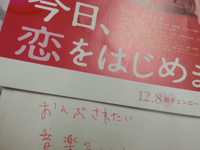 今日、
恋をはじめま
12.8
おんぶされたい
音楽